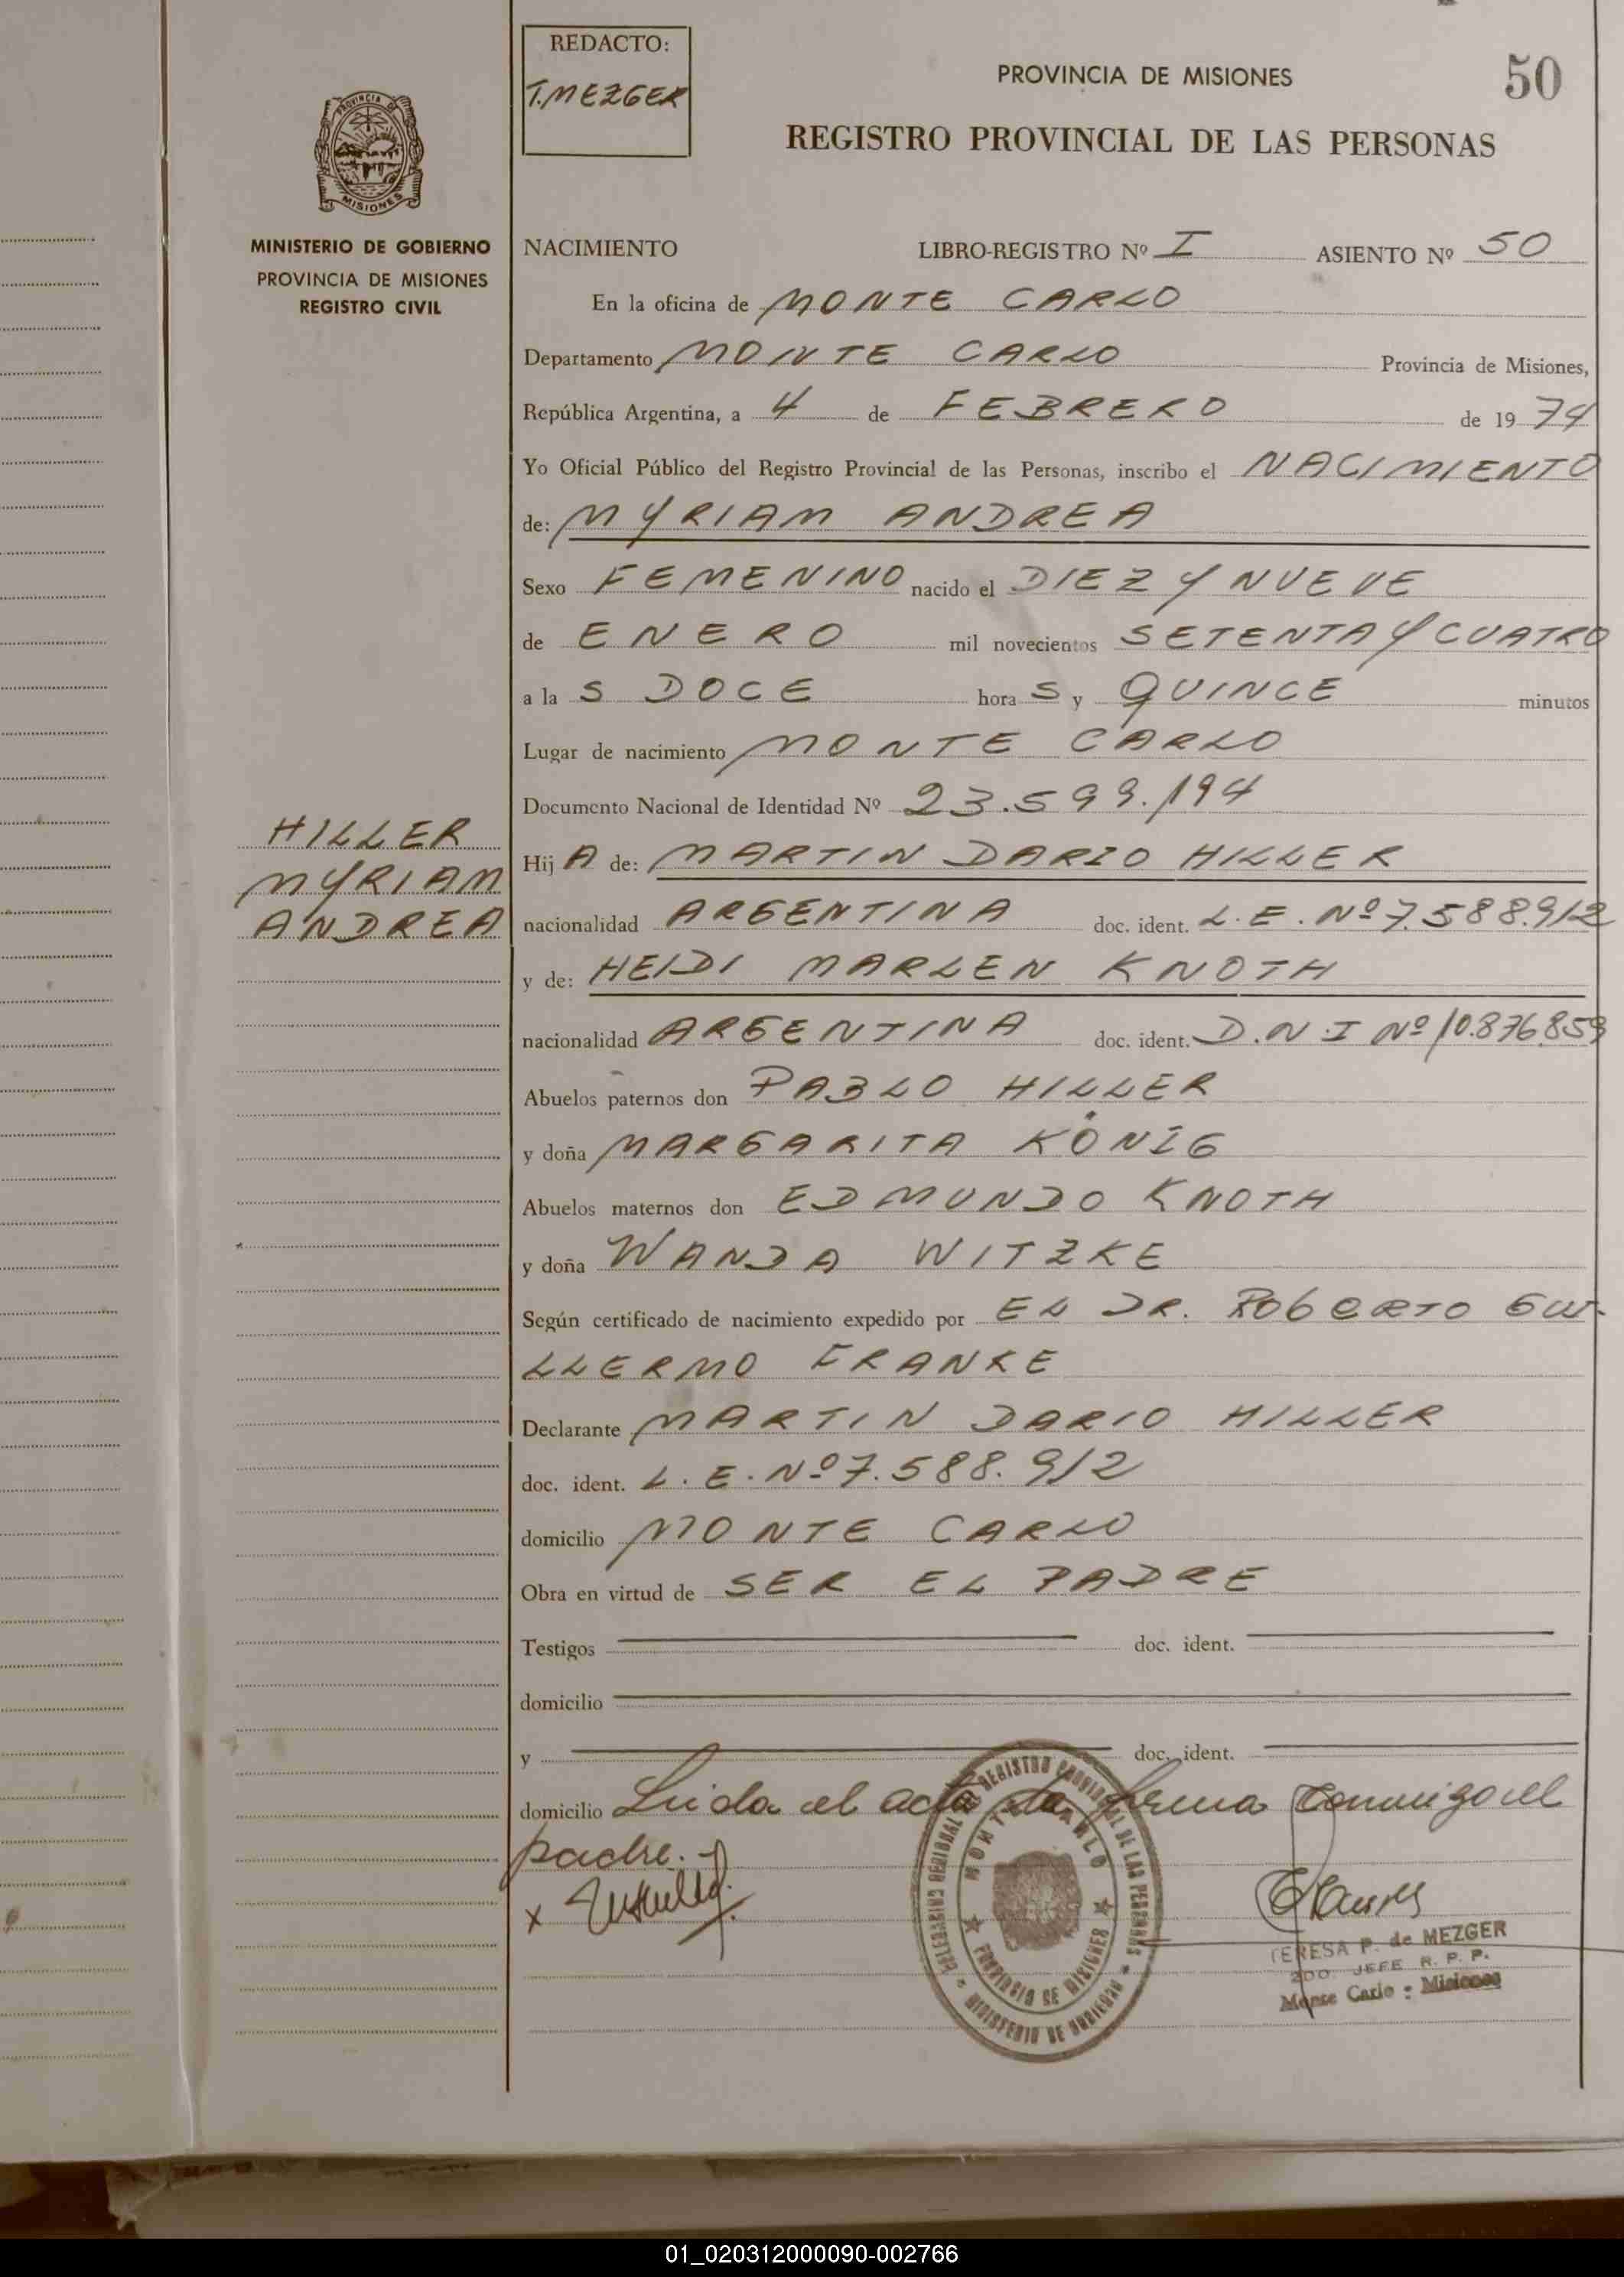 REDACTO:
T. MEZGER
PROVINCIA DE MISIONES
50
REGISTRO PROVINCIAL DE LAS PERSONAS
PROVINCIA DE
MISIONES
MINISTERIO DE GOBIERNO
PROVINCIA DE MISIONES
REGISTRO CIVIL
NACIMIENTO LIBRO-REGISTRO Nº I ASIENTO Nº 50
En la oficina de MONTE CARLO
Departamento MONTE CARLO Provincia de Misiones,
República Argentina, a 4 de FEBRERO de 1974
Yo Oficial Público del Registro Provincial de las Personas, inscribo el NACIMIENTO
de: MYRIAM ANDREA
Sexo FEMENINO nacido el DIEZ Y NUEVE
de ENERO mil novecientos SETENTA Y CUATRO
a la S DOCE hora S y QUINCE minutos
Lugar de nacimiento MONTE CARLO
Documento Nacional de Identidad Nº 23.599.194
HILLER
MYRIAM
ANDREA
Hij A de: MARTIN DARIO HILLER
nacionalidad ARGENTINA doc. ident. L.E. Nº 7.588.912
y de: HEIDI MARLEN KNOTH
nacionalidad ARGENTINA doc. ident. D.N.I Nº 10.876.859
Abuelos paternos don PABLO HILLER
y doña MARGARITA KÖNIG
Abuelos maternos don EDMUNDO KNOTH
y doña WANDA WITZKE
Según certificado de nacimiento expedido por EL DR. ROBERTO GUI-
LLERMO FRANKE
Declarante MARTIN DARIO HILLER
doc. ident. L.E. Nº 7.588.912
domicilio MONTE CARLO
Obra en virtud de SER EL PADRE
Testigos doc. ident.
domicilio
y doc. ident.
domicilio Leida el acta la firma conmigo el
padre.
x
DELEGACION REGIONAL DEL REGISTRO PROVINCIAL DE LAS PERSONAS
MONTE CARLO
PROVINCIA DE MISIONES
MINISTERIO DE GOBIERNO
TERESA P. de MEZGER
2DO. JEFE R. P. P.
Monte Carlo - Misiones
01_020312000090-002766